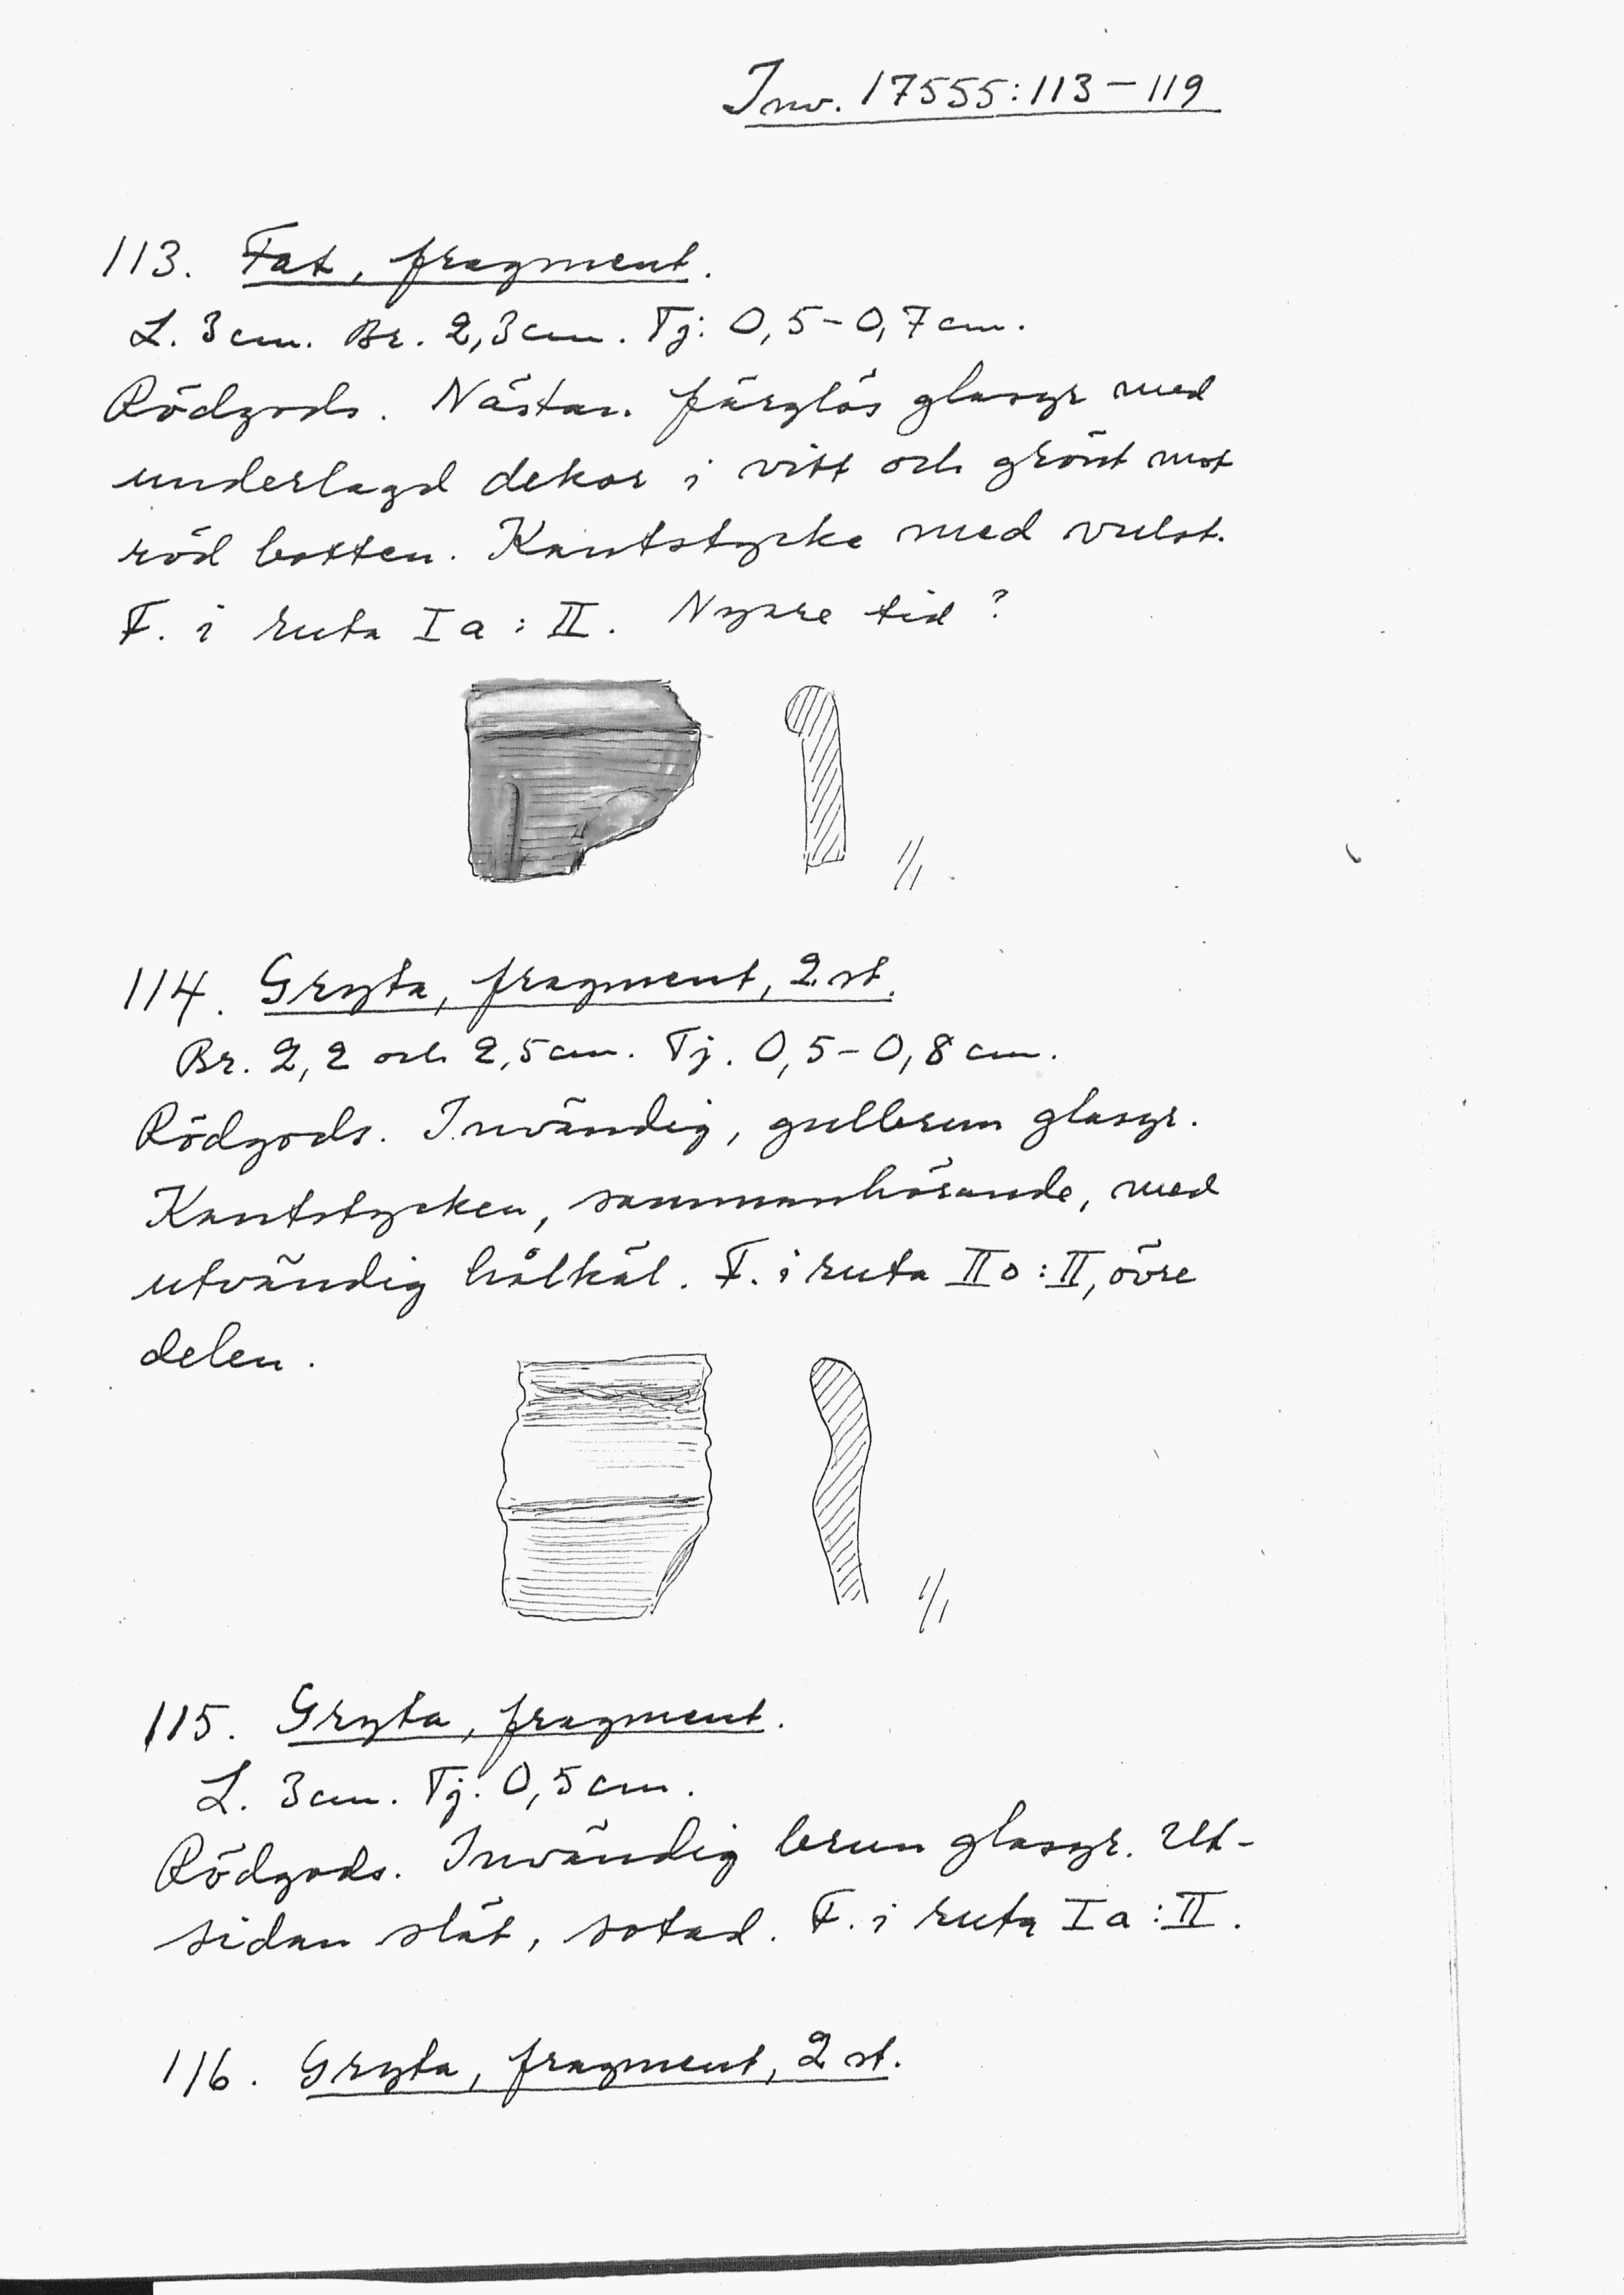 Inv. 17555:113-119
113. Fat, fragment.
L. 3 cm. Br. 2,3 cm. Tj: 0,5-0,7 cm.
Rödgods. Nästan färglös glasyr med
underlagd dekor i vitt och grönt mot
röd botten. Kantstycke med vulst.
F. i ruta Ia:II. Nyare tid?
1/1
114. Gryta, fragment, 2 st.
Br. 2,2 och 2,5 cm. Tj. 0,5-0,8 cm.
Rödgods. Invändig, gulbrun glasyr.
Kantstycken, sammanhörande, med
utvändig hålkäl. F. i ruta IIo:II, övre
delen.
1/1
115. Gryta, fragment.
L. 3 cm. Tj. 0,5 cm.
Rödgods. Invändig brun glasyr. Ut-
sidan slät, sotad. F. i ruta Ia:II.
116. Gryta, fragment, 2 st.